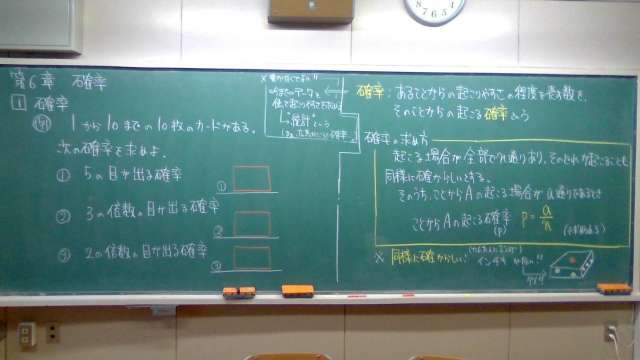 第6章 確率
1 確率
例 1から10までの10枚のカードがある。
次の確率を求めよ。
① 5の目が出る確率
①
② 3の倍数の目が出る確率
②
③ 2の倍数の目が出る確率
③
確率：あることがらの起こりやすさの程度を表す数を、
そのことがらの起こる確率という
確率の求め方
起こる場合が全部でn通りあり、そのどれが起こることも
同様に確からしいとする。
そのうち、ことがらAの起こる場合がa通りであるとき
ことがらAの起こる確率 p = a/n
(p)
※ 同様に確からしい：
8 7 6 5 4